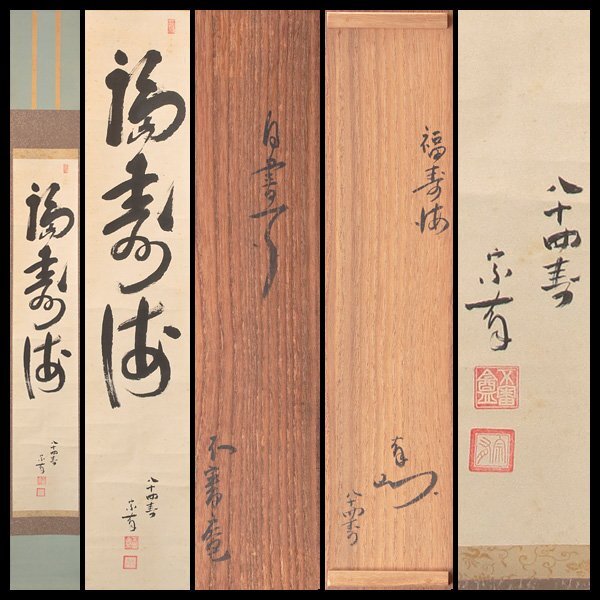 福寿海
八十四寿
宗有
福寿海
八十四寿
宗有
自書
不審庵
福寿海
八十四寿
八十四寿
宗有
不審菴